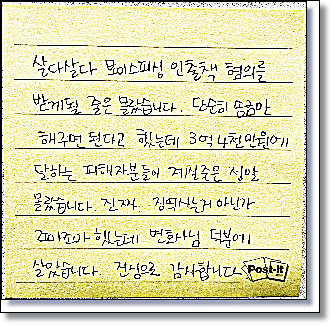 살다살다 보이스피싱 인출책 혐의를
받게될 줄은 몰랐습니다. 단순히 송금만
해주면 된다고 했는데 3억 4천만원에
달하는 피해자분들이 계실줄은 정말
몰랐습니다. 진짜. 징역사는거 아닌가
조마조마 했는데 변호사님 덕분에
살았습니다. 진심으로 감사합니다.
Post-it